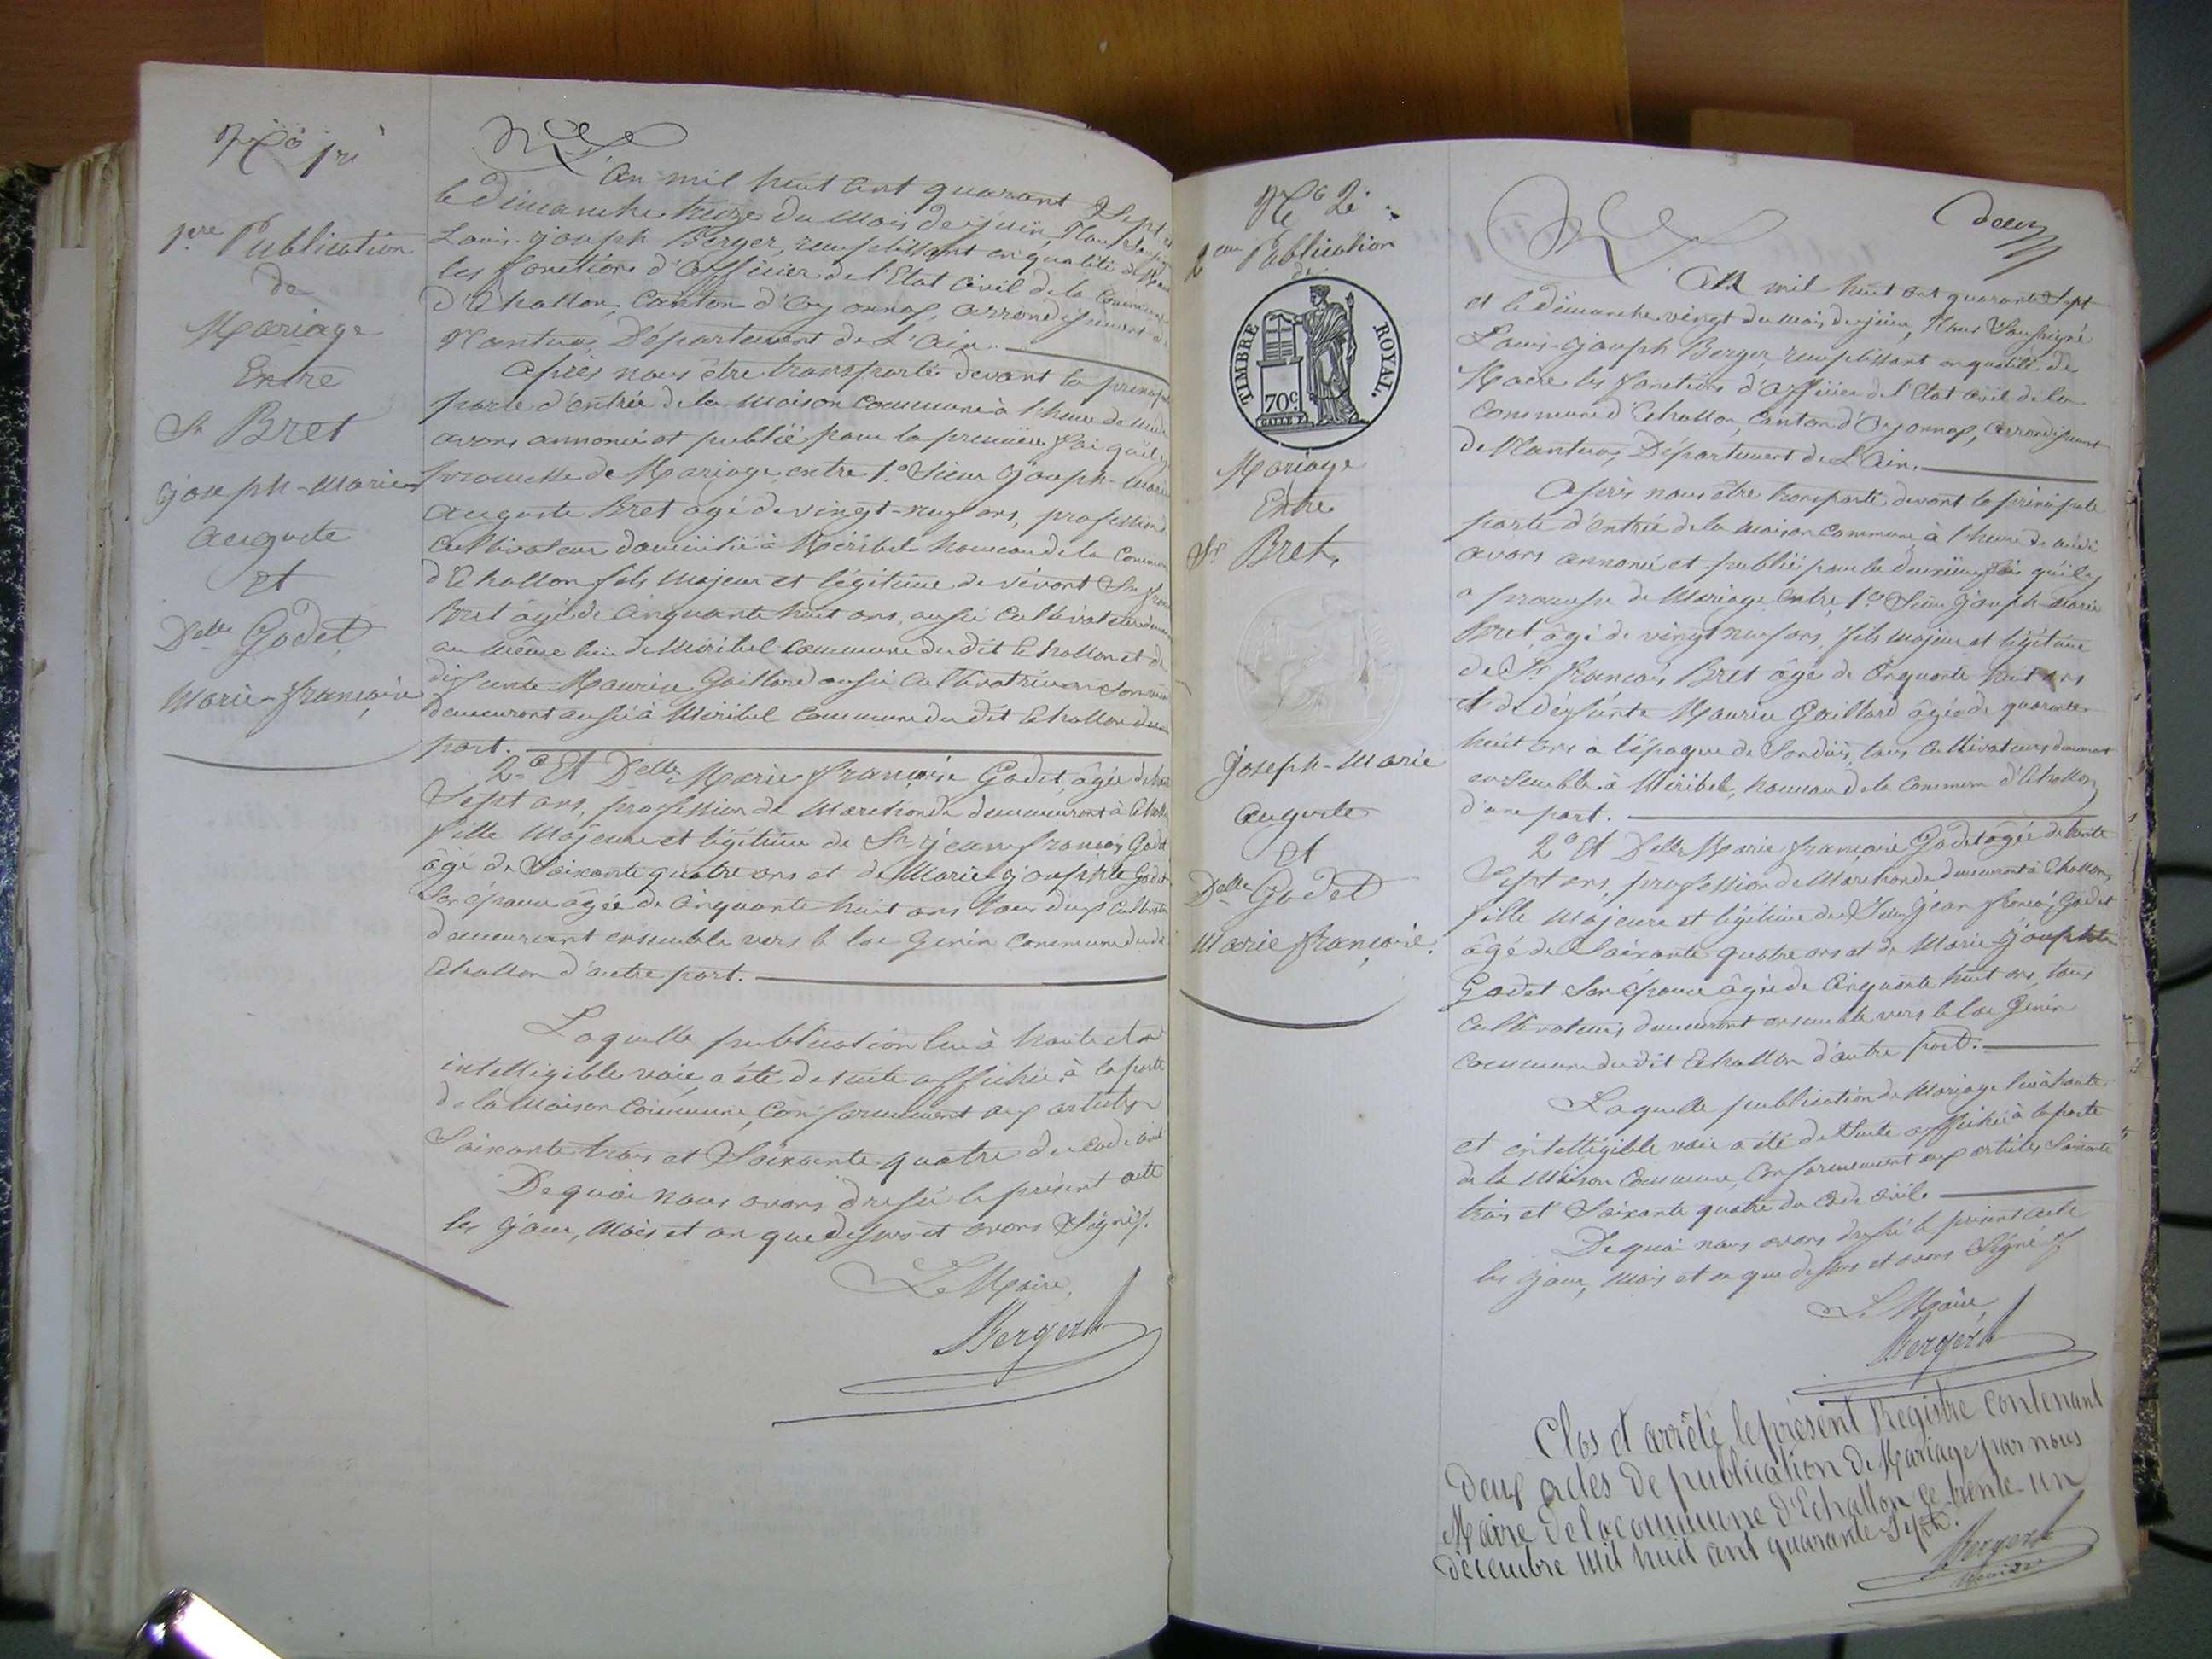 No 1er
1ere Publication
de
Mariage
Entre
Sr Bret
Joseph-Marie
auguste
et
Delle Godet
Marie-françoise
L'an mil huit cent quarante Sept et
le dimanche treize du mois de juin, Nous
Louis-joseph Berger, remplissant en qualité de
les fonctions d'officier de l'Etat civil de la Commune
d'Echallon, Canton d'Oyonnax, arrondissement de
Nantua, Département de L'Ain.
Après nous être transporté devant la principale
porte d'entrée de la maison commune à l'heure de midi
avons annoncé et publié pour la première fois qu'il y
promesse de Mariage entre 1o Sieur Joseph-Marie
auguste Bret âgé de vingt-neuf ans, profession
cultivateur domicilié à Miribel hameau de la Commune
d'Echallon fils majeur et légitime de vivant Sr
Bret âgé de Cinquante huit ans, aussi Cultivateur
au même lieu de Miribel Commune du dit Echallon et de
défunte Maurise Gaillard aussi Cultivatrice
demeurant aussi à Miribel Commune du dit Echallon d'une
part.
2o Et Delle Marie françoise Godet, âgée de trente
Sept ans, profession de Marchande demeurant à Echallon
fille Majeure et légitime de Sr jean françois Godet
âgé de Soixante quatre ans et de Marie josephte Godet
Son épouse âgée de Cinquante huit ans tous deux Cultivateurs
demeurant ensemble vers le lac Genin Commune du dit
Echallon d'autre part.
Laquelle publication lue à haute et
intelligible voix, a été de suite affichée à la porte
de la Maison Commune, Conformément aux articles
Soixante trois et Soixante-quatre du code civil
De quoi nous avons dressé le présent acte
les jour, mois et an que dessus et avons Signé.
Le Maire,
Berger
No 2e
deux
2eme Publication
de
TIMBRE ROYAL.
70c
Mariage
Entre
Sr Bret,
Joseph-Marie
auguste
et
Delle Godet
Marie françoise.
L'an mil huit cent quarante Sept
et le dimanche vingt du mois de juin, Nous Soussigné
Louis-joseph Berger remplissant en qualité de
Maire les fonctions d'officier de l'Etat civil de la
Commune d'Echallon, Canton d'Oyonnax, arrondissement
de Nantua, Département de L'Ain.
Après nous être transporté devant la principale
porte d'entrée de la maison commune à l'heure de midi
avons annoncé et publié pour la deuxième fois qu'il y
a promesse de Mariage entre 1o Sieur Joseph-Marie
Bret, âgé de vingt neuf ans, fils majeur et légitime
de Sr françois Bret âgé de Cinquante huit ans
et de défunte Maurise Gaillard âgée de quarante
huit ans à l'époque de Son décès, tous Cultivateurs demeurant
ensemble à Miribel, hameau de la Commune d'Echallon
d'une part.
2o Et Delle Marie françoise Godet âgée de trente
Sept ans, profession de Marchande demeurant à Echallon,
fille Majeure et légitime de Sieur jean françois Godet
âgé de Soixante quatre ans et de Marie josephte
Godet Son épouse âgée de Cinquante huit ans, tous
Cultivateurs demeurant ensemble vers le lac Genin
Commune du dit Echallon d'autre part.
Laquelle publication de Mariage lue à haute
et intelligible voix a été de Suite affichée à la porte
de la Maison Commune, Conformément aux articles Soixante
trois et Soixante quatre du Code civil.
De quoi nous avons dressé le présent acte
les jour, mois et an que dessus et avons Signé
Le Maire,
Berger
Clos et arrêté le présent Registre contenant
deux actes de publication de Mariage par nous
Maire de la commune d'Echallon ce trente-un
décembre mil huit cent quarante Sept.
Berger